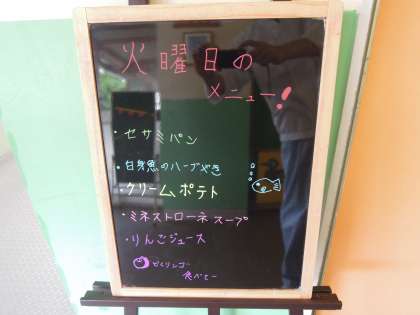 火曜日の
メニュー!
・セサミパン
・白身魚のハーブやき
・クリームポテト
・ミネストローネスープ
・りんごジュース
食べたー